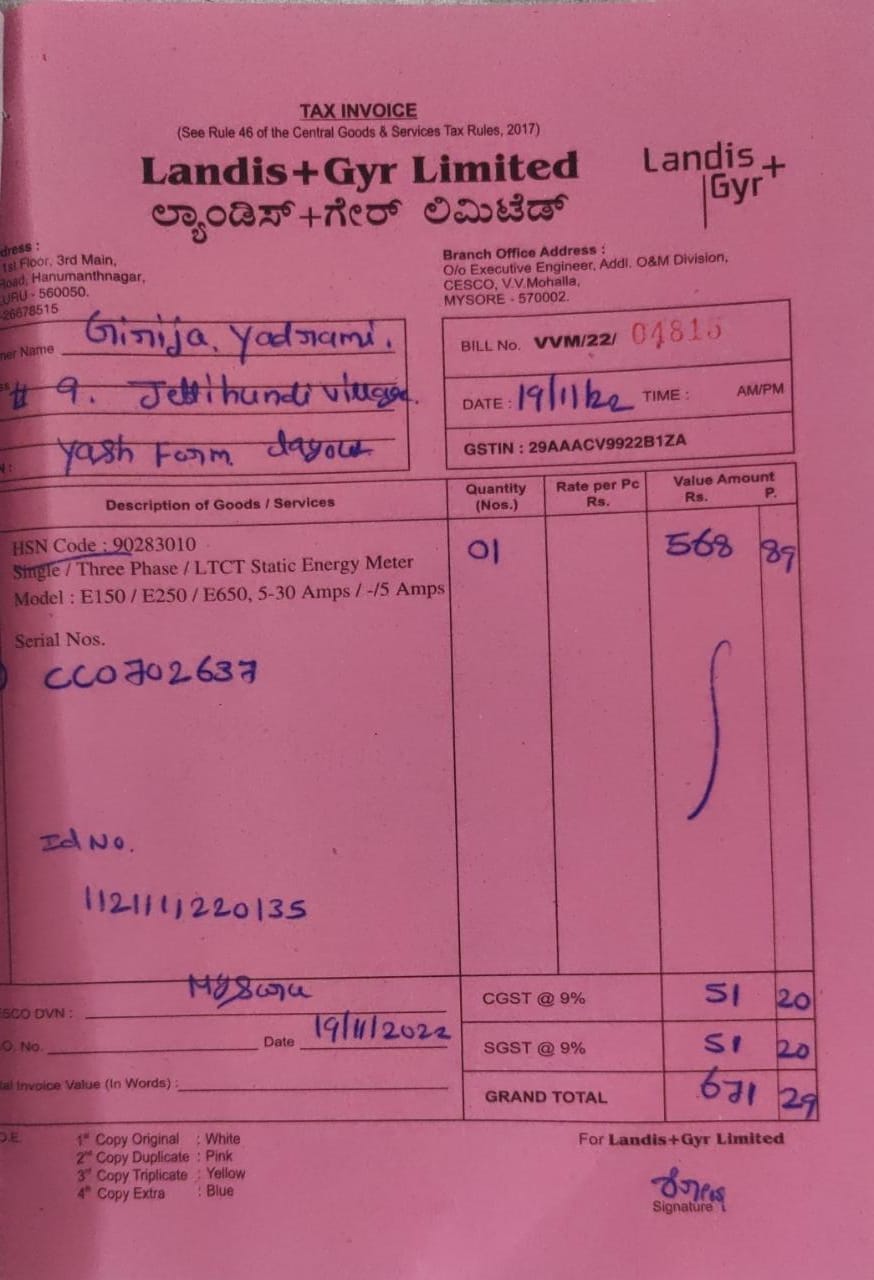 TAX INVOICE
(See Rule 46 of the Central Goods & Services Tax Rules, 2017)
Landis+Gyr Limited
ಲ್ಯಾಂಡಿಸ್+ಗೇರ್ ಲಿಮಿಟೆಡ್
Landis+
Gyr
dress :
1st Floor, 3rd Main,
Road, Hanumanthnagar,
URU - 560050.
26678515
Branch Office Address :
O/o Executive Engineer, Addl. O&M Division,
CESCO, V.V.Mohalla,
MYSORE - 570002.
ner Name Girija. Yadrami.
# 9. Jettihundi village.
Yash Farm
BILL No. VVM/22/ 04815
DATE : 19/11/22 TIME : AM/PM
GSTIN : 29AAACV9922B1ZA
Description of Goods / Services Quantity (Nos.) Rate per Pc Rs. Value Amount Rs. P.
HSN Code : 90283010 01 568 89
Single / Three Phase / LTCT Static Energy Meter
Model : E150 / E250 / E650, 5-30 Amps / -/5 Amps
Serial Nos.
CC0702637
Id No.
112111220135
ESCO DVN : Mysore
O. No. Date 19/11/2022
al Invoice Value (In Words) :
CGST @ 9% 51 20
SGST @ 9% 51 20
GRAND TOTAL 671 29
O.E. 1st Copy Original : White
2nd Copy Duplicate : Pink
3rd Copy Triplicate : Yellow
4th Copy Extra : Blue
For Landis+Gyr Limited
Signature